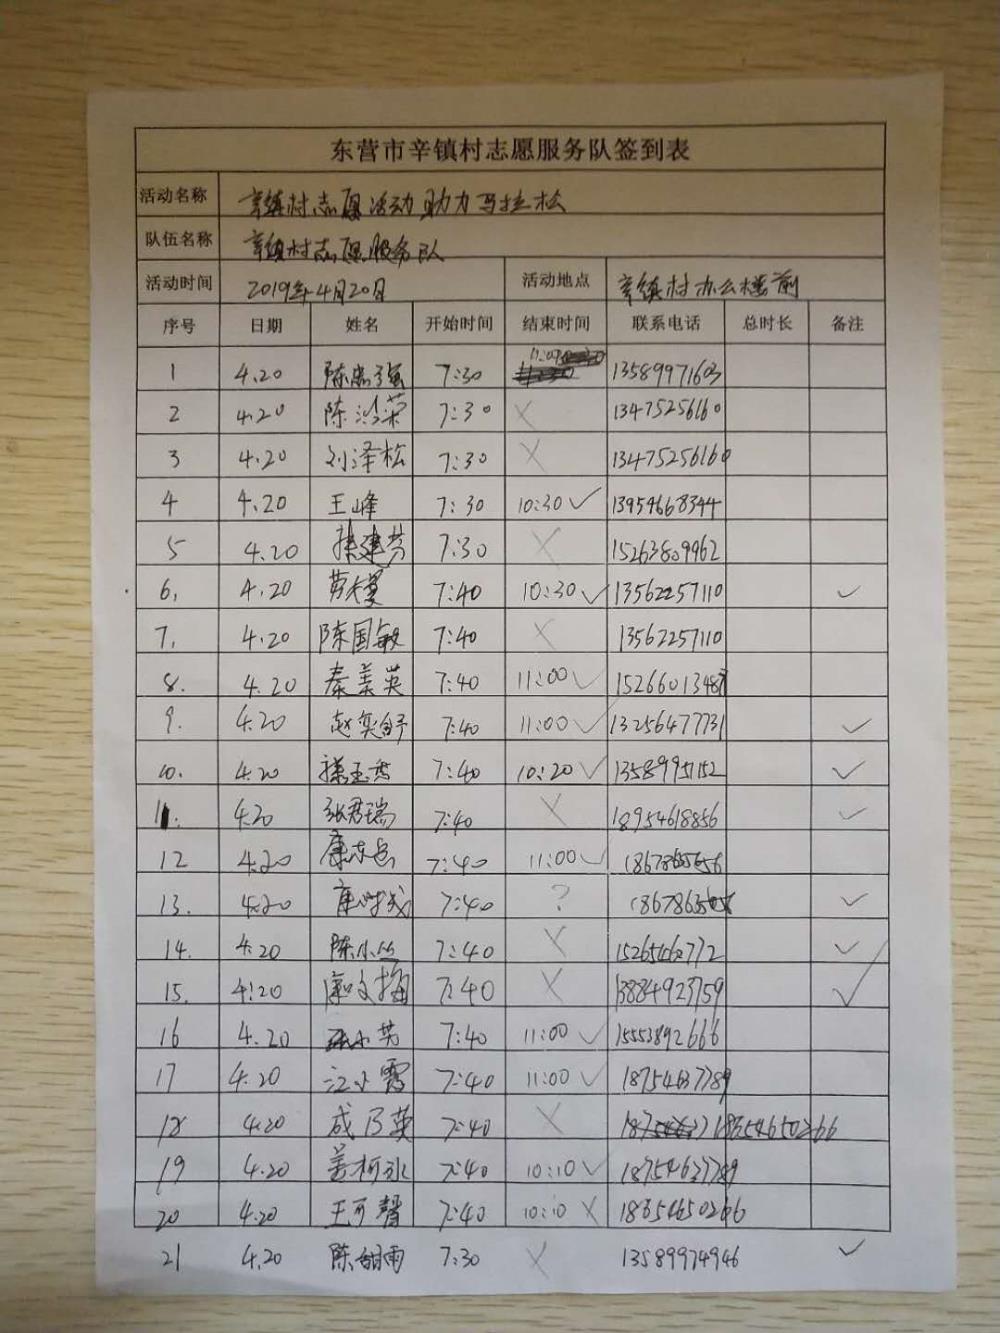 东营市辛镇村志愿服务队签到表
活动名称 辛镇村志愿活动助力马拉松
队伍名称 辛镇村志愿服务队
活动时间 2019年4月20日 活动地点 辛镇村办公楼前
序号 日期 姓名 开始时间 结束时间 联系电话 总时长 备注
1 4.20 陈忠强 7:30 11:00 13589971603
2 4.20 陈鸿荣 7:30 X 13475256160
3 4.20 刘泽松 7:30 X 13475256160
4 4.20 王峰 7:30 10:30 ✓ 13954668344
5 4.20 7:30 X 15263809962
6. 4.20 7:40 10:30 ✓ 13562257110 ✓
7. 4.20 陈国敏 7:40 X 13562257110
8. 4.20 秦美英 7:40 11:00 ✓ 15266013487
9. 4.20 赵奕舒 7:40 11:00 ✓ 13256477731 ✓
10. 4.20 7:40 10:20 ✓ 13589995152 ✓
11. 4.20 张君瑞 7:40 X 18954618856 ✓
12 4.20 康志忠 7:40 11:00 ✓
13. 4.20 7:40 ? ✓
14. 4.20 陈小丛 7:40 X ✓
15. 4.20 康文梅 7:40 X 13884923759 ✓
16 4.20 张小英 7:40 11:00 ✓ 15553892666
17 4.20 江小霞 7:40 11:00 ✓ 18754637789
18 4.20 成乃英 7:40 X 18654650266
19 4.20 姜柯冰 7:40 10:10 ✓ 18754637789
20 4.20 王可馨 7:40 10:10 X 18654650266
21 4.20 陈甜雨 7:30 X 13589974946 ✓